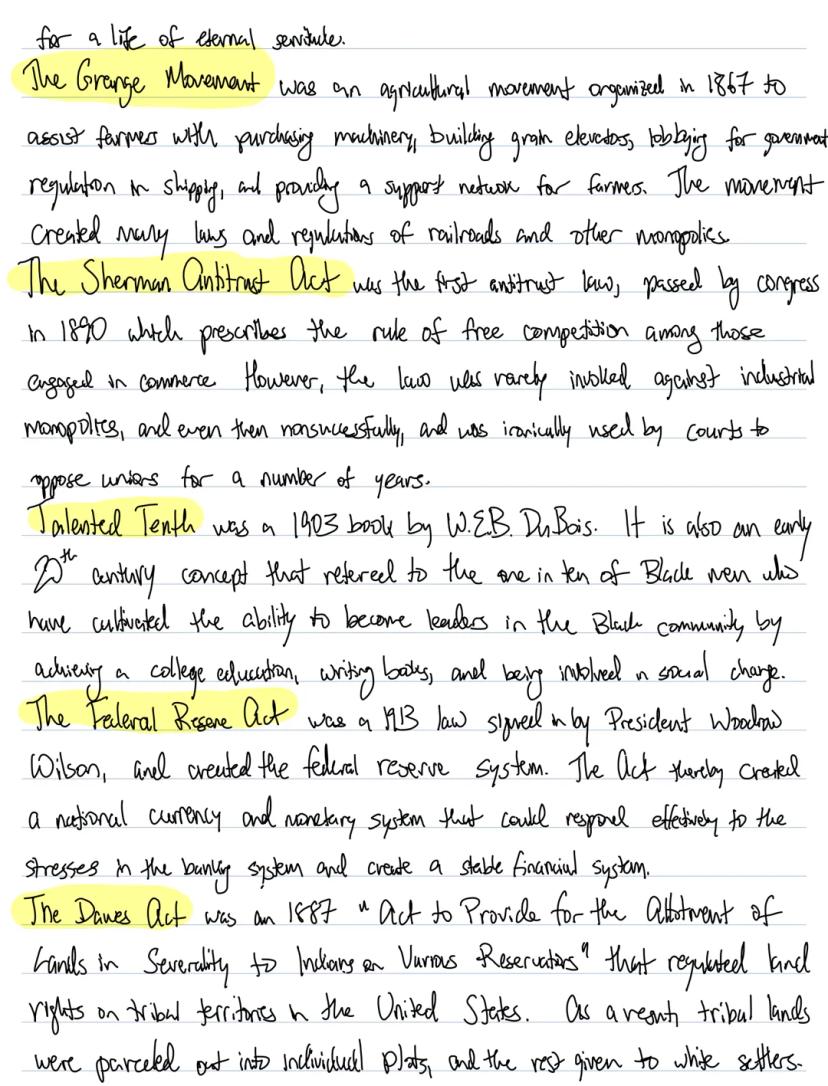 for a life of eternal servitude.
The Grange Movement was an agricultural movement organized in 1867 to
assist farmers with purchasing machinery, building grain elevators, lobbying for government
regulation in shipping, and providing a support network for farmers. The movement
created many laws and regulations of railroads and other monopolies.
The Sherman Antitrust Act was the first antitrust law, passed by congress
in 1890 which prescribes the rule of free competition among those
engaged in commerce However, the law was rarely invoked against industrial
monopolies, and even then nonsuccessfully, and was ironically used by courts to
oppose unions for a number of years.
Talented Tenth was a 1903 book by W.E.B. DuBois. It is also an early
20th century concept that refereed to the one in ten of Black men who
have cultivated the ability to become leaders in the Black community by
achieving a college education, writing books, and being involved in social change.
The Federal Reserve Act was a 1913 law signed in by President Woodrow
Wilson, and created the federal reserve system. The Act thereby created
a national currency and monetary system that could respond effectively to the
stresses in the banking system and create a stable financial system.
The Dawes Act was an 1887 "Act to Provide for the Allotment of
Lands in Severality to Indians on Various Reservations" that regulated land
rights on tribal territories in the United States. As a result, tribal lands
were parceled out into individual plots, and the rest given to white settlers.